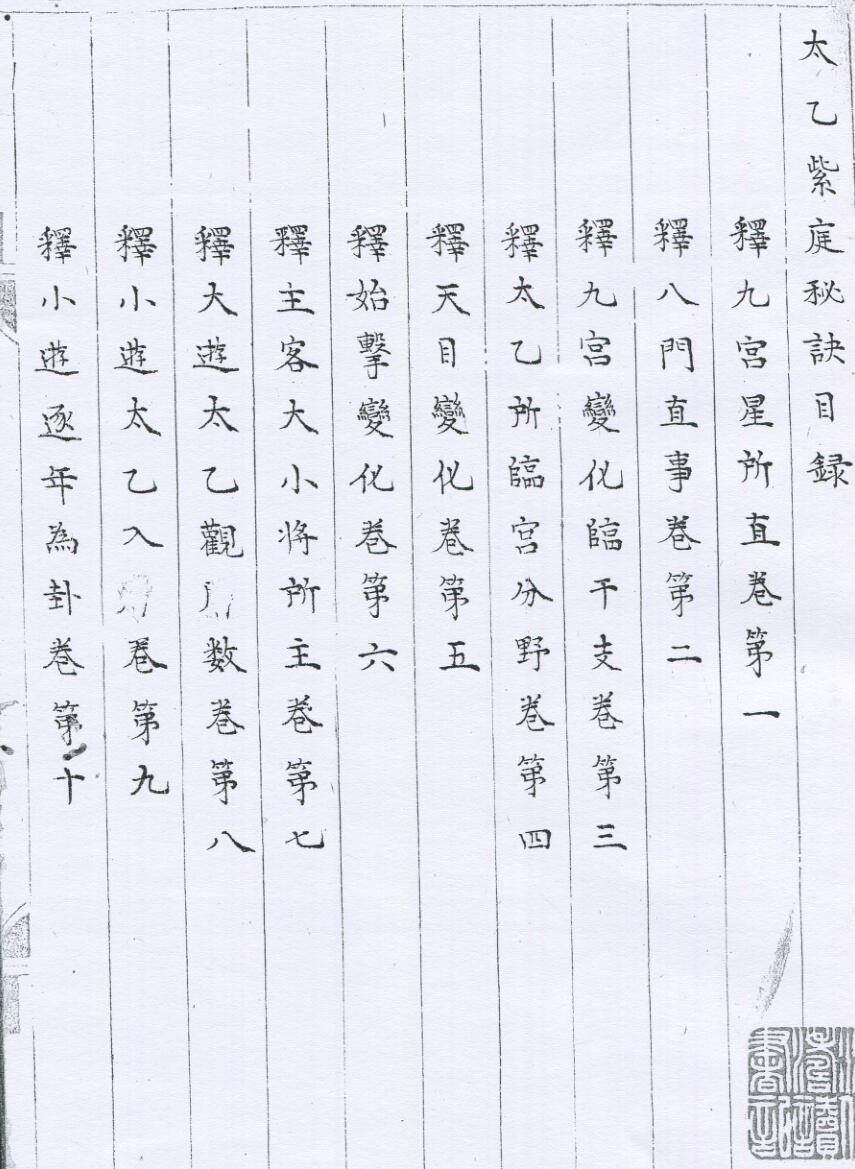 太乙紫庭秘訣目録
釋九宮星所直卷第一
釋八門直事卷第二
釋九宮變化臨干支卷第三
釋太乙所臨宮分野卷第四
釋天目變化卷第五
釋始擊變化卷第六
釋主客大小将所主卷第七
釋大遊太乙觀数卷第八
釋小遊太乙入卷第九
釋小遊逐年為卦卷第十